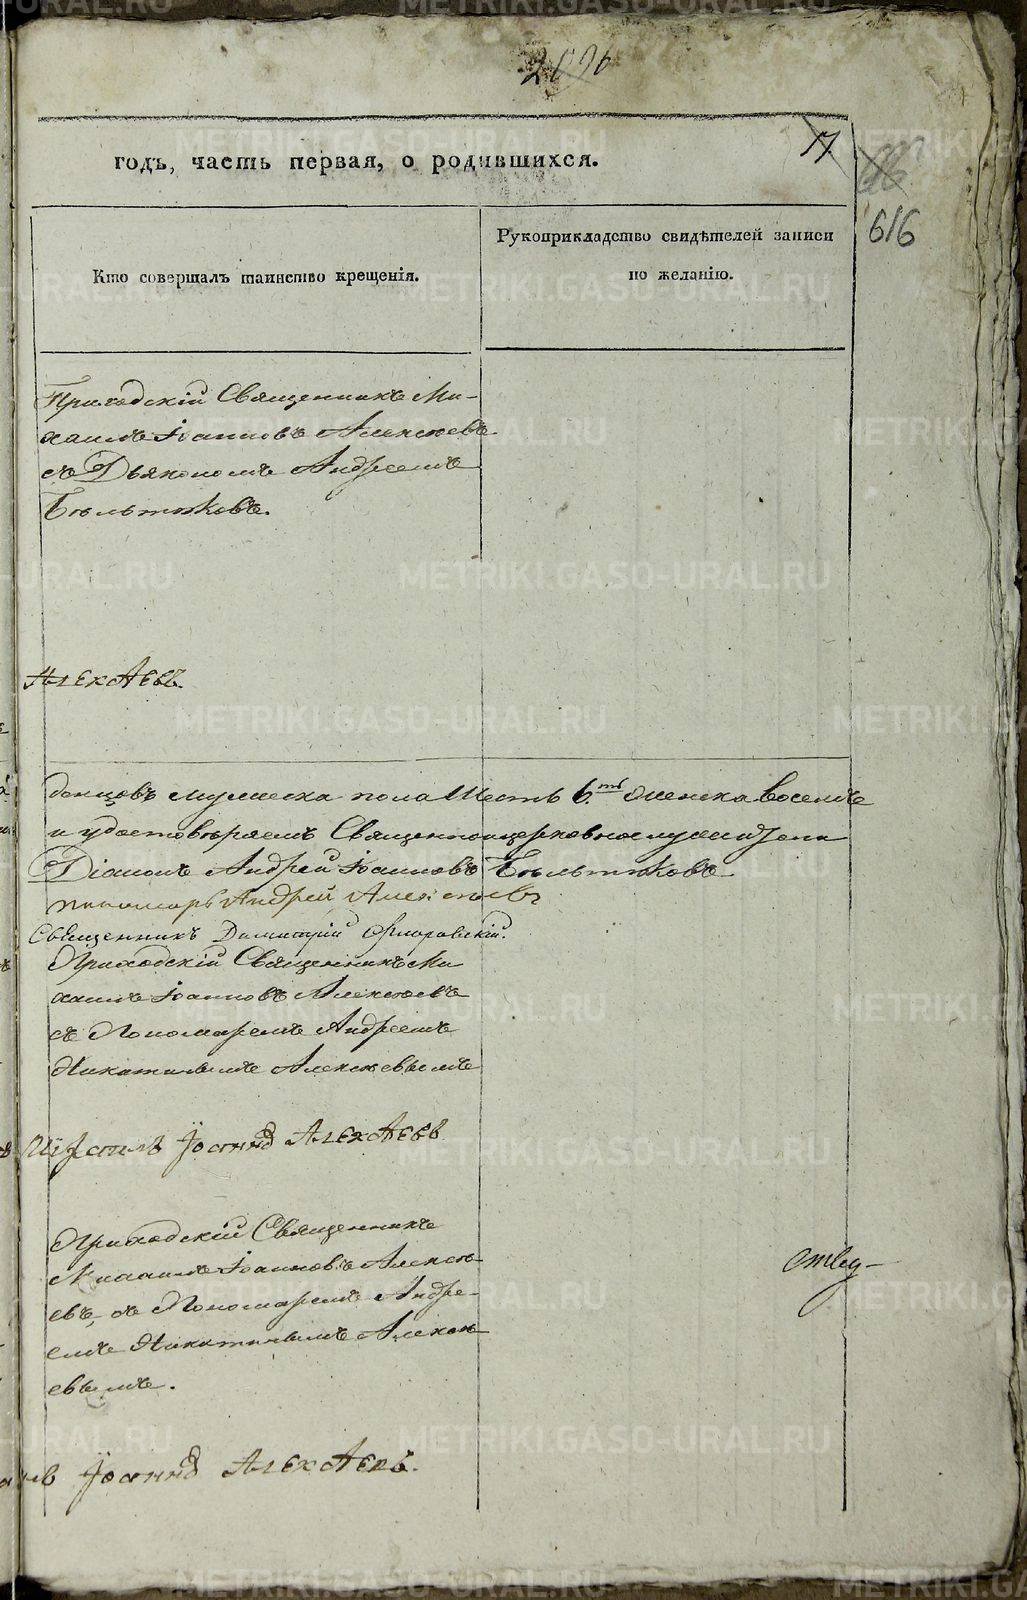 годъ, часть первая, о родившихся.
17
616
Кто совершалъ таинство крещенія.
Рукоприкладство свидѣтелей записи
по желанію.
Приходскій Священникъ Ми-
хаилъ Іоанновъ Алексѣевъ
съ Дьякономъ Андреемъ
Бѣльтюковъ.
АлексѣевЪ
данцовъ мужеска пола Шесть 6.ть женска Восемь
и удостовѣряемъ Священноицерковнослужители
Діаконъ Андрей Іоанновъ Бѣльтюковъ
пономарь Андрей Алексѣевъ
Священникъ Димитрій Флоровскій.
Приходскій Священникъ Ми
хаилъ Іоанновъ Алексѣевъ
съ Пономаремъ Андреемъ
Никитинымъ Алексѣевымъ
Іоаннъ Алексѣевъ
Приходскій Священникъ
Михаилъ Іоанновъ Алексѣ-
евъ, съ Пономаремъ Андре-
емъ Никитинымъ Алексѣ
евымъ.
Іоаннъ Алексѣевъ.
METRIKI.GASO-URAL.RU